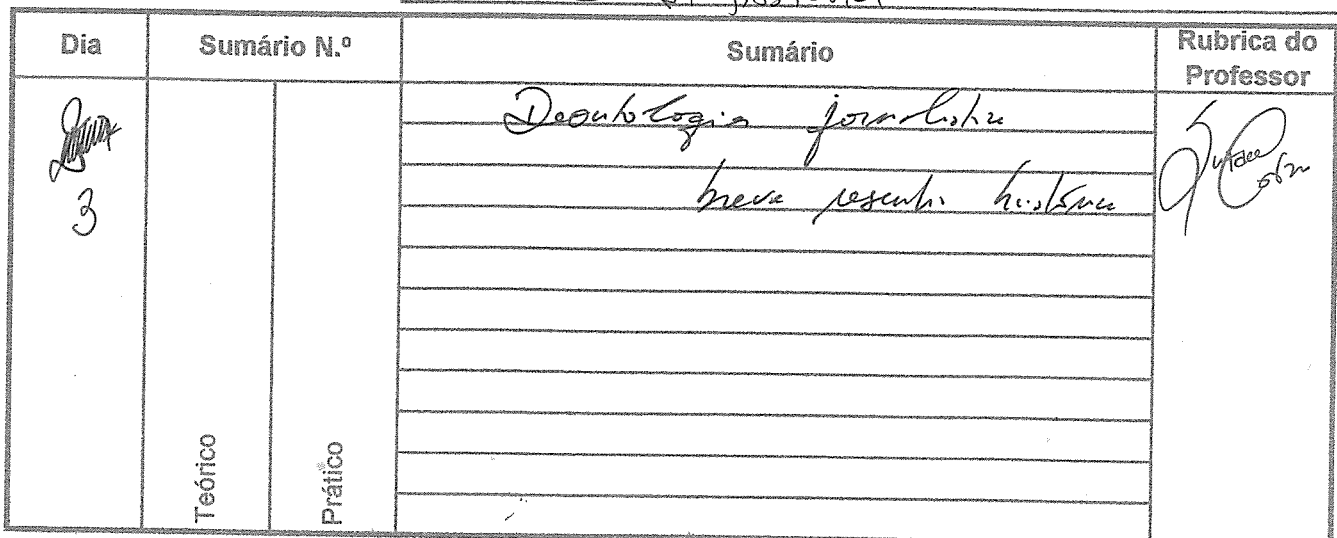 Dia
Sumário N.º
Sumário
Rubrica do
Professor
3
Teórico
Prático
Deontologia jornalística
breve resenha histórica